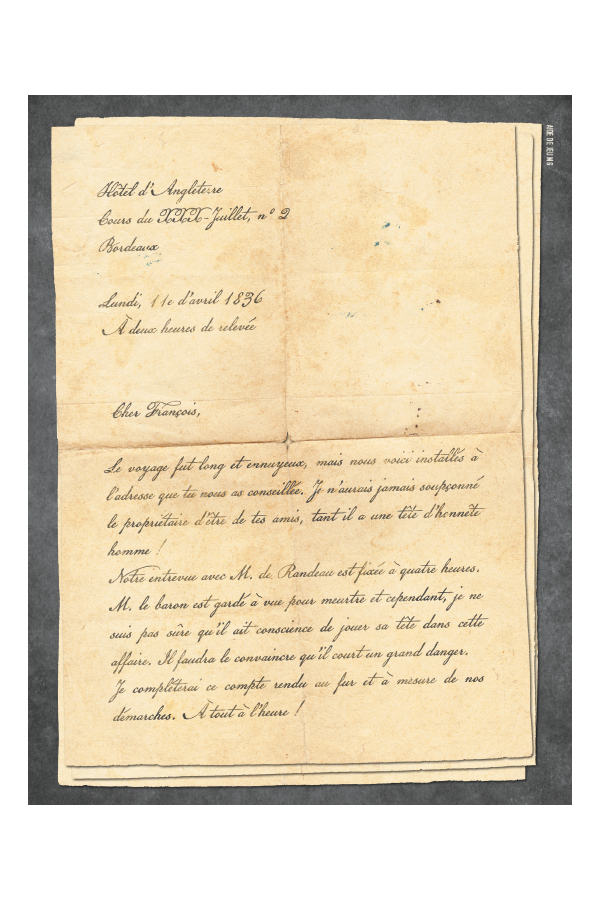 AIDE DE JEU N°6
Hôtel d'Angleterre
Cours du XXX-Juillet, n° 2
Bordeaux
Lundi, 11e d'avril 1836
À deux heures de relevée
Cher François,
Le voyage fut long et ennuyeux, mais nous voici installés à
l'adresse que tu nous as conseillée. Je n'aurais jamais soupçonné
le propriétaire d'être de tes amis, tant il a une tête d'honnête
homme !
Notre entrevue avec M. de Randeau est fixée à quatre heures.
M. le baron est gardé à vue pour meurtre et cependant, je ne
suis pas sûre qu'il ait conscience de jouer sa tête dans cette
affaire. Il faudra le convaincre qu'il court un grand danger.
Je complèterai ce compte rendu au fur et à mesure de nos
démarches. À tout à l'heure !